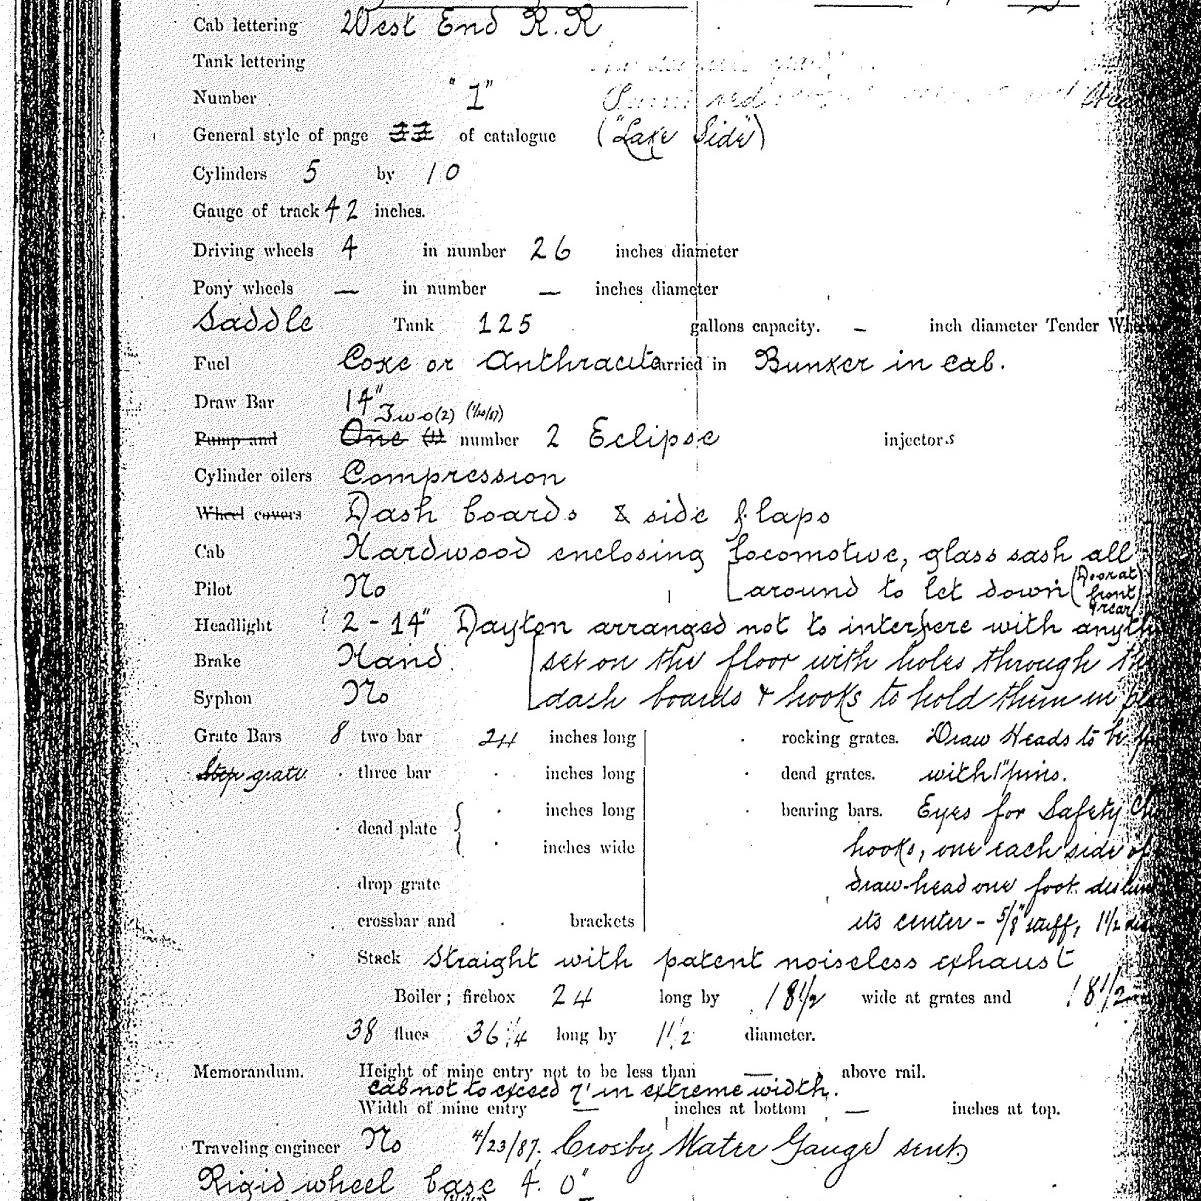 Cab lettering West End R.R
Tank lettering
Number "1"
General style of page 33 of catalogue ("Lake Side")
Cylinders 5 by 10
Gauge of track 42 inches.
Driving wheels 4 in number 26 inches diameter
Pony wheels — in number — inches diameter
Saddle Tank 125 gallons capacity. – inch diameter Tender
Fuel Coke or Anthracite carried in Bunker in cab.
Draw Bar 14"
Two (2)
Pump and One (1) number 2 Eclipse injectors
Cylinder oilers Compression
Wheel covers Dash boards & side flaps
Cab Hardwood enclosing locomotive, glass sash all
Pilot No around to let down (Door at front & rear)
Headlight 2 - 14" Dayton arranged not to interfere with
Brake Hand set on the floor with holes through
Syphon No dash boards & hooks to hold them in
Grate Bars 8 two bar 24 inches long rocking grates. Draw Heads to
Step grate three bar inches long dead grates. with 1" pins.
inches long bearing bars. Eyes for Safety
dead plate
inches wide hooks, one each side of
drop grate draw-head one foot
crossbar and brackets its center - 5/8" stuff, 1 1/2
Stack Straight with patent noiseless exhaust
Boiler; firebox 24 long by 18 1/2 wide at grates and 18 1/2
38 flues 36 1/4 long by 1 1/2 diameter.
Memorandum. Height of mine entry not to be less than — above rail.
cab not to exceed 7' in extreme width.
Width of mine entry — inches at bottom — inches at top.
Traveling engineer No 4/23/87. Crosby Water Gauge sent
Rigid wheel base 4' 0"